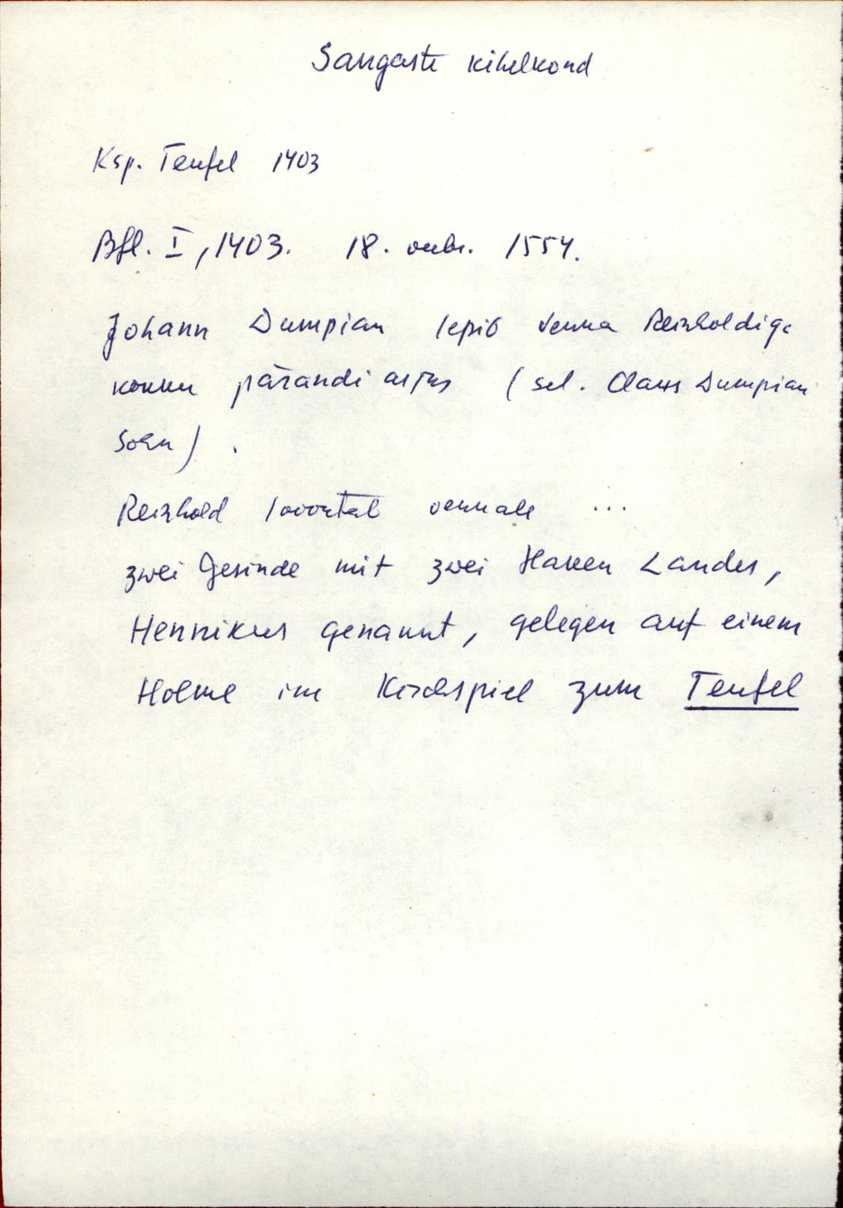 Sangaste kihelkond
Ksp. Teufel 1403
Bfl. I, 1403. 18. 1554.
Johann Dumpian lepib venna Reinholdiga
kokku pärandi asjus (sel. Claus Dumpian
Sohn).
Reinhold loovutab vennale ...
zwei Gesinde mit zwei Haken Landes,
Hennikus genannt, gelegen auf einem
Holme im Kirchspiel zum Teufel